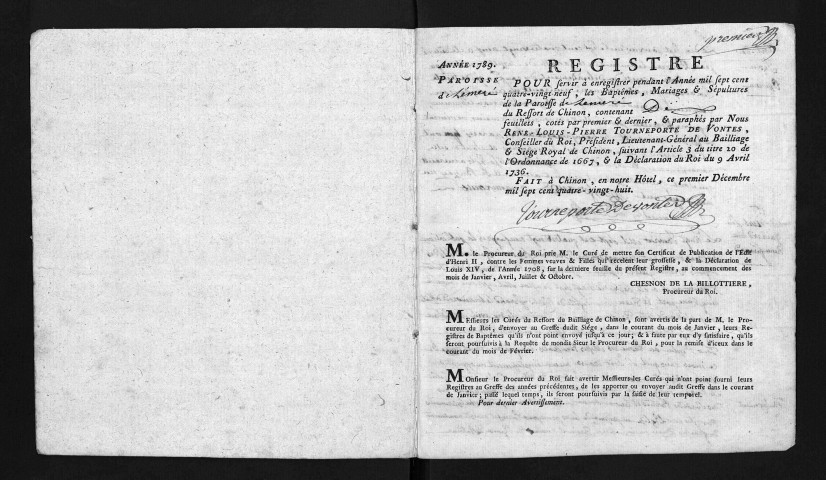 premier
ANNÉE 1789.
PAROISSE
de Lémeré
REGISTRE
POUR servir à enregistrer pendant l'Année mil sept cent
quatre-vingt-neuf, les Baptêmes, Mariages & Sépultures
de la Paroisse de Lemeré
du Ressort de Chinon, contenant Dix
feuillets, cotés par premier & dernier, & paraphés par Nous
RENE-LOUIS-PIERRE TOURNEPORTE DE VONTES,
Conseiller du Roi, Président, Lieutenant-Général au Bailliage
& Siége Royal de Chinon, suivant l'Article 3 du titre 20 de
l'Ordonnance de 1667, & la Déclaration du Roi du 9 Avril
1736.
FAIT à Chinon, en notre Hôtel, ce premier Décembre
mil sept cent quatre-vingt-huit.
Tourneporte Devontes
M. le Procureur du Roi prie M. le Curé de mettre son Certificat de Publication de l'Edit
d'Henri II, contre les Femmes veuves & Filles qui recelent leur grossesse, & la Déclaration de
Louis XIV, de l'Année 1708, sur la derniere feuille du présent Registre, au commencement des
mois de Janvier, Avril, Juillet & Octobre.
CHESNON DE LA BILLOTTIERE,
Procureur du Roi.
MEssieurs les Curés du Ressort du Bailliage de Chinon, sont avertis de la part de M. le Pro-
cureur du Roi, d'envoyer au Greffe dudit Siége, dans le courant du mois de Janvier, leurs Re-
gistres de Baptêmes qu'ils n'ont point envoyé jusqu'à ce jour; & à faute par eux d'y satisfaire, qu'ils
seront poursuivis à la Requête de mondit Sieur le Procureur du Roi, pour la remise d'iceux dans le
courant du mois de Février.
MOnsieur le Procureur du Roi fait avertir Messieurs les Curés qui n'ont point fourni leurs
Registres au Greffe des années précédentes, de les apporter ou envoyer audit Greffe dans le courant
de Janvier; passé lequel temps, ils seront poursuivis par la saisie de leur temporel.
Pour dernier Avertissement.